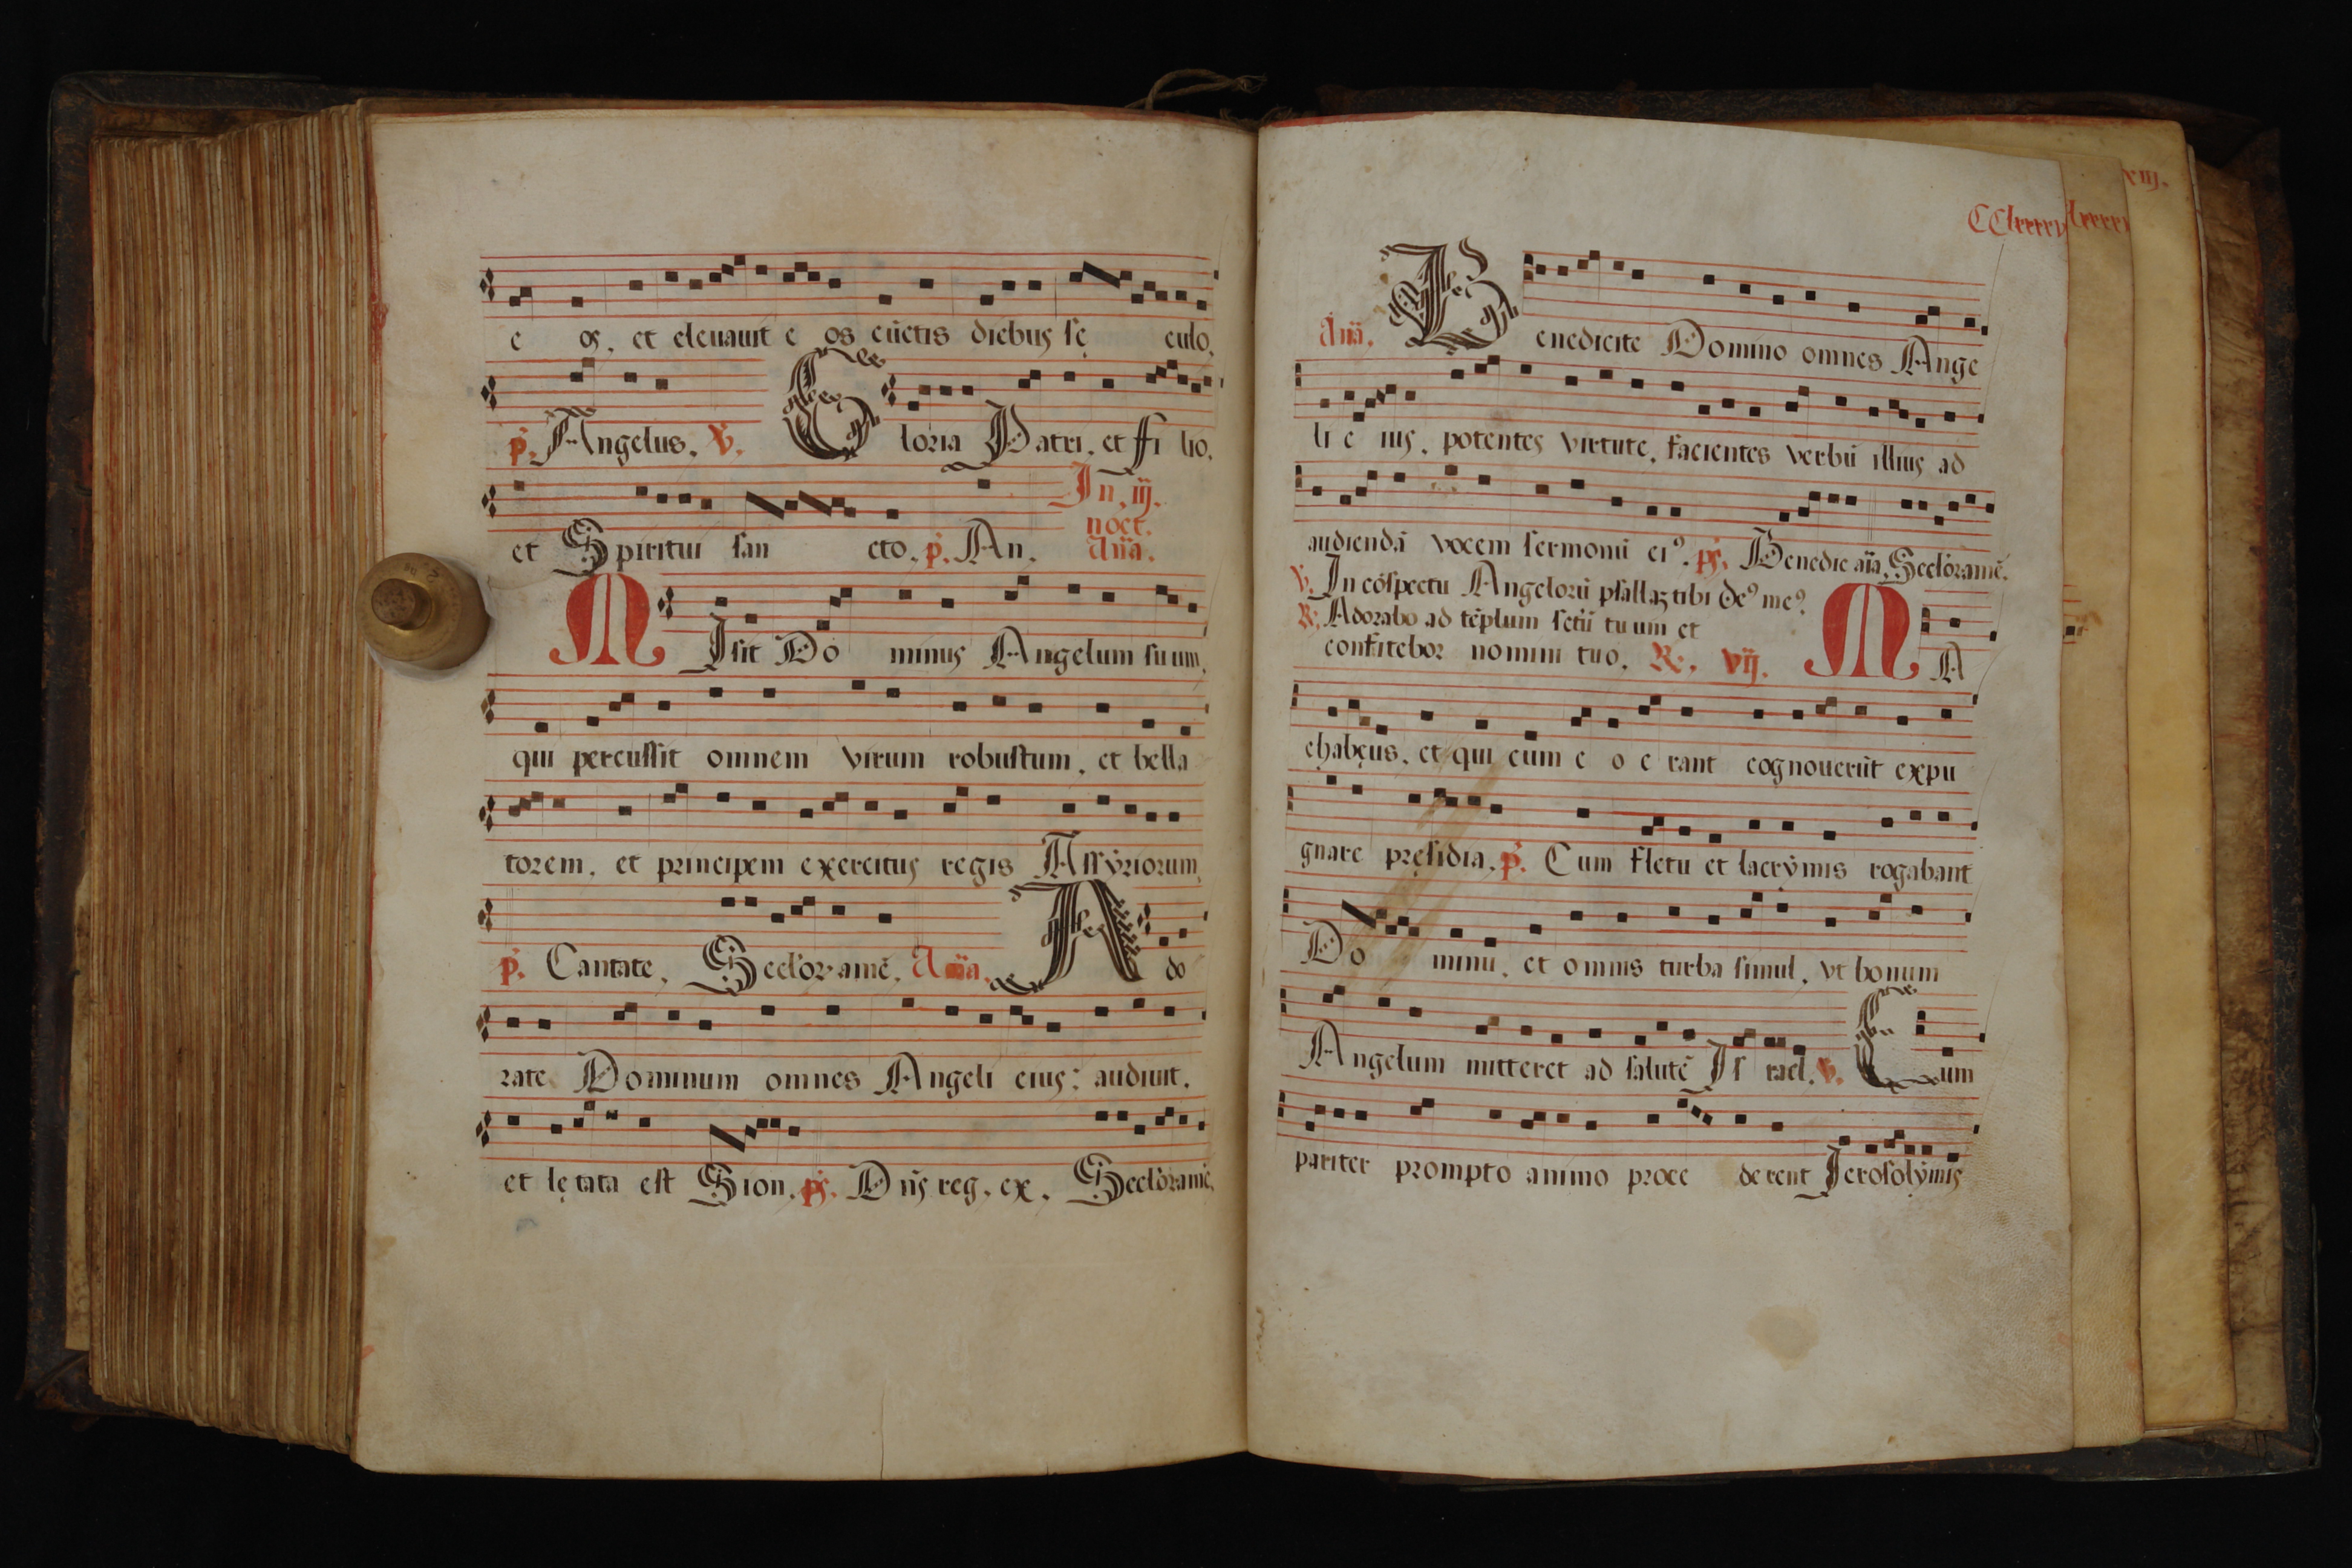 e os, et eleuauit e os cūctis diebus sę culo.
p. Angelus. V. Gloria Patri, et Filio.
et Spiritui san cto. p. An. In. iij. noct. Aña.
MIsit Do minus Angelum suum,
qui percussit omnem virum robustum, et bella
torem, et principem exercitus regis Assyriorum,
p. Cantate. Secloramē. Aña. Ado
rate Dominum omnes Angeli eius: audiuit,
et lę tata est Sion. ps. Dñs reg. ex. Secloramē.
CClxxxxv
xiij.
Aña. Benedicite Domino omnes Ange
li e ius, potentes virtute, facientes verbū illius ad
audiendā vocem sermonū eiꝰ. ps. Benedic aīa. Secloramē.
V. In cōspectu Angelorū psallaʒ tibi deꝰ meꝰ.
R. Adorabo ad tēplum sctū tuum et
confitebor nomini tuo. R. vij. MA
chabęus, et qui cum e o e rant cognouerūt expu
gnare pręsidia. p. Cum fletu et lacrymis rogabant
Do minū, et omnis turba simul, vt bonum
Angelum mitteret ad salutē Is rael. V. Cum
pariter prompto animo proce derent Ierosolymis